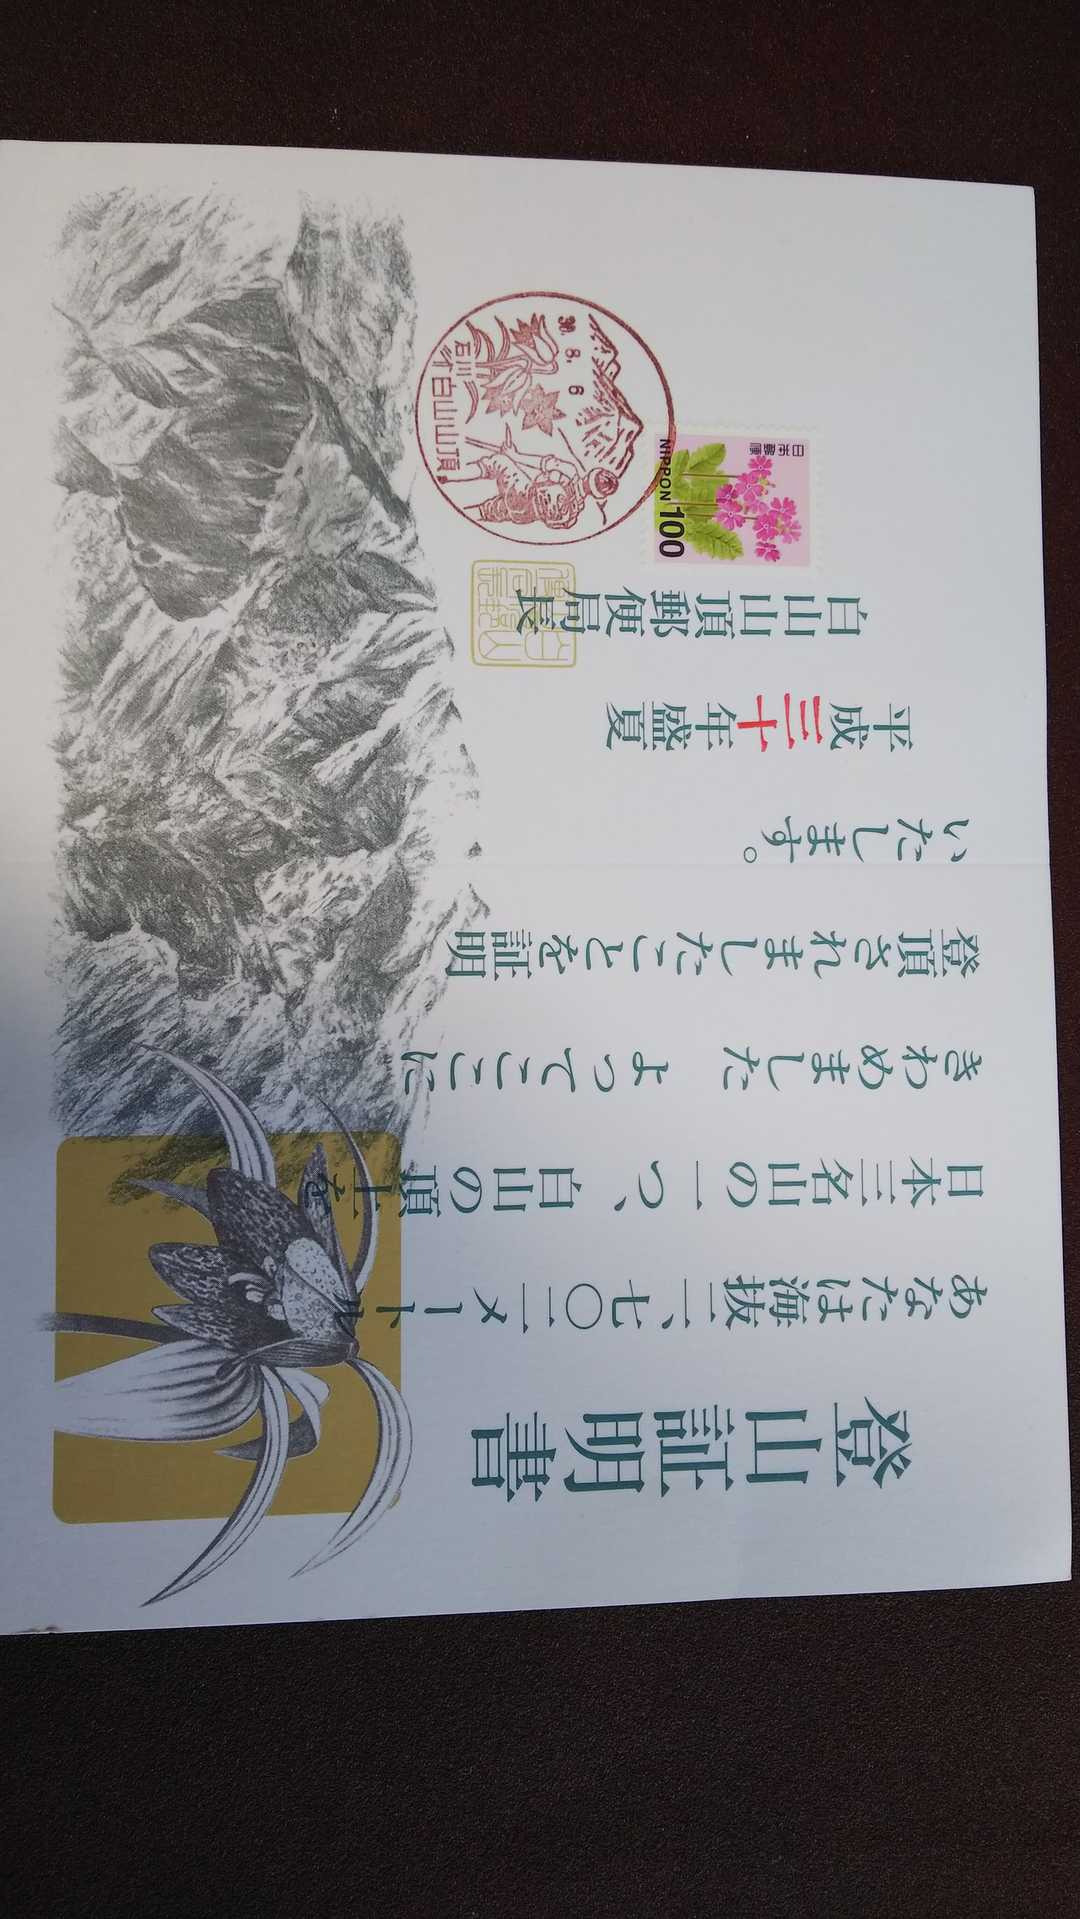 登山証明書
あなたは海抜二、七〇二メートル
日本三名山の一つ、白山の頂上を
きわめました よってここに
登頂されましたことを証明
いたします。
平成三十年盛夏
白山山頂郵便局長
日本郵便
NIPPON 100
30. 8. 6
石川
白山山頂